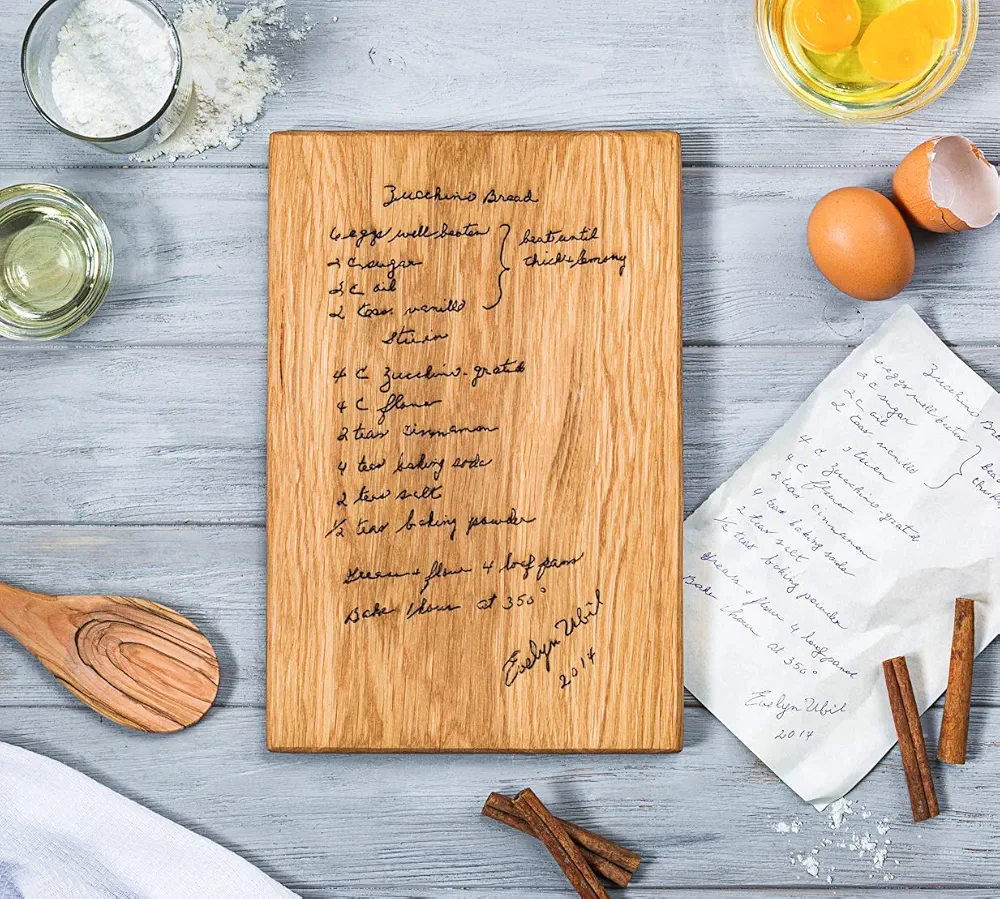 Zucchini Bread
6 eggs well beaten } beat until
2 C sugar thick & lemony
2 C oil
2 teas vanilla
Stir in
4 C Zucchini - grated
4 C flour
2 teas cinnamon
4 teas baking soda
2 teas salt
1/2 teas baking powder
Grease + flour 4 loaf pans
Bake 1 hour at 350°
Evelyn Ubil
2014
Zucchini Bre
6 eggs well beaten } bea
2 C sugar thick
2 C oil
2 teas vanilla
Stir in
4 C Zucchini grated
4 C flour
2 teas cinnamon
4 teas baking soda
2 teas salt
1/2 teas baking powder
Grease + flour 4 loaf pans
Bake 1 hour at 350°
Evelyn Ubil
2014